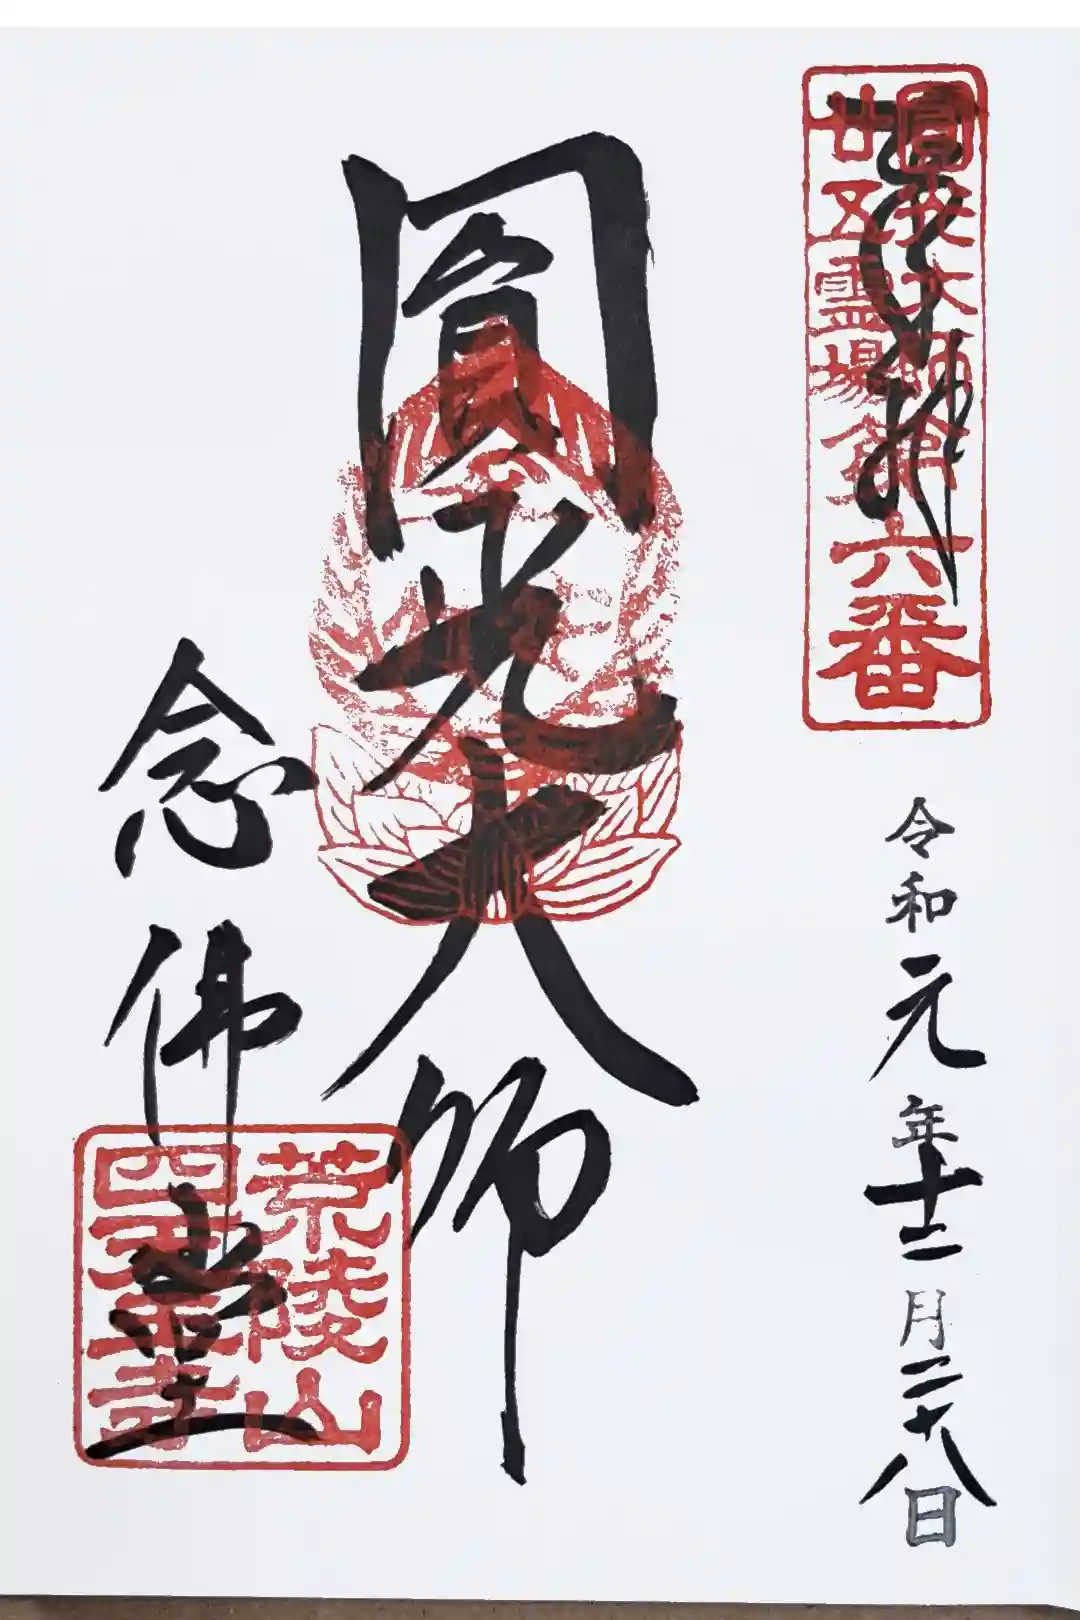 奉拝
圓光大師
廿五霊場第六番
令和元年十二月二十八日
圓光大師
念佛堂
荒陵山
四天王寺